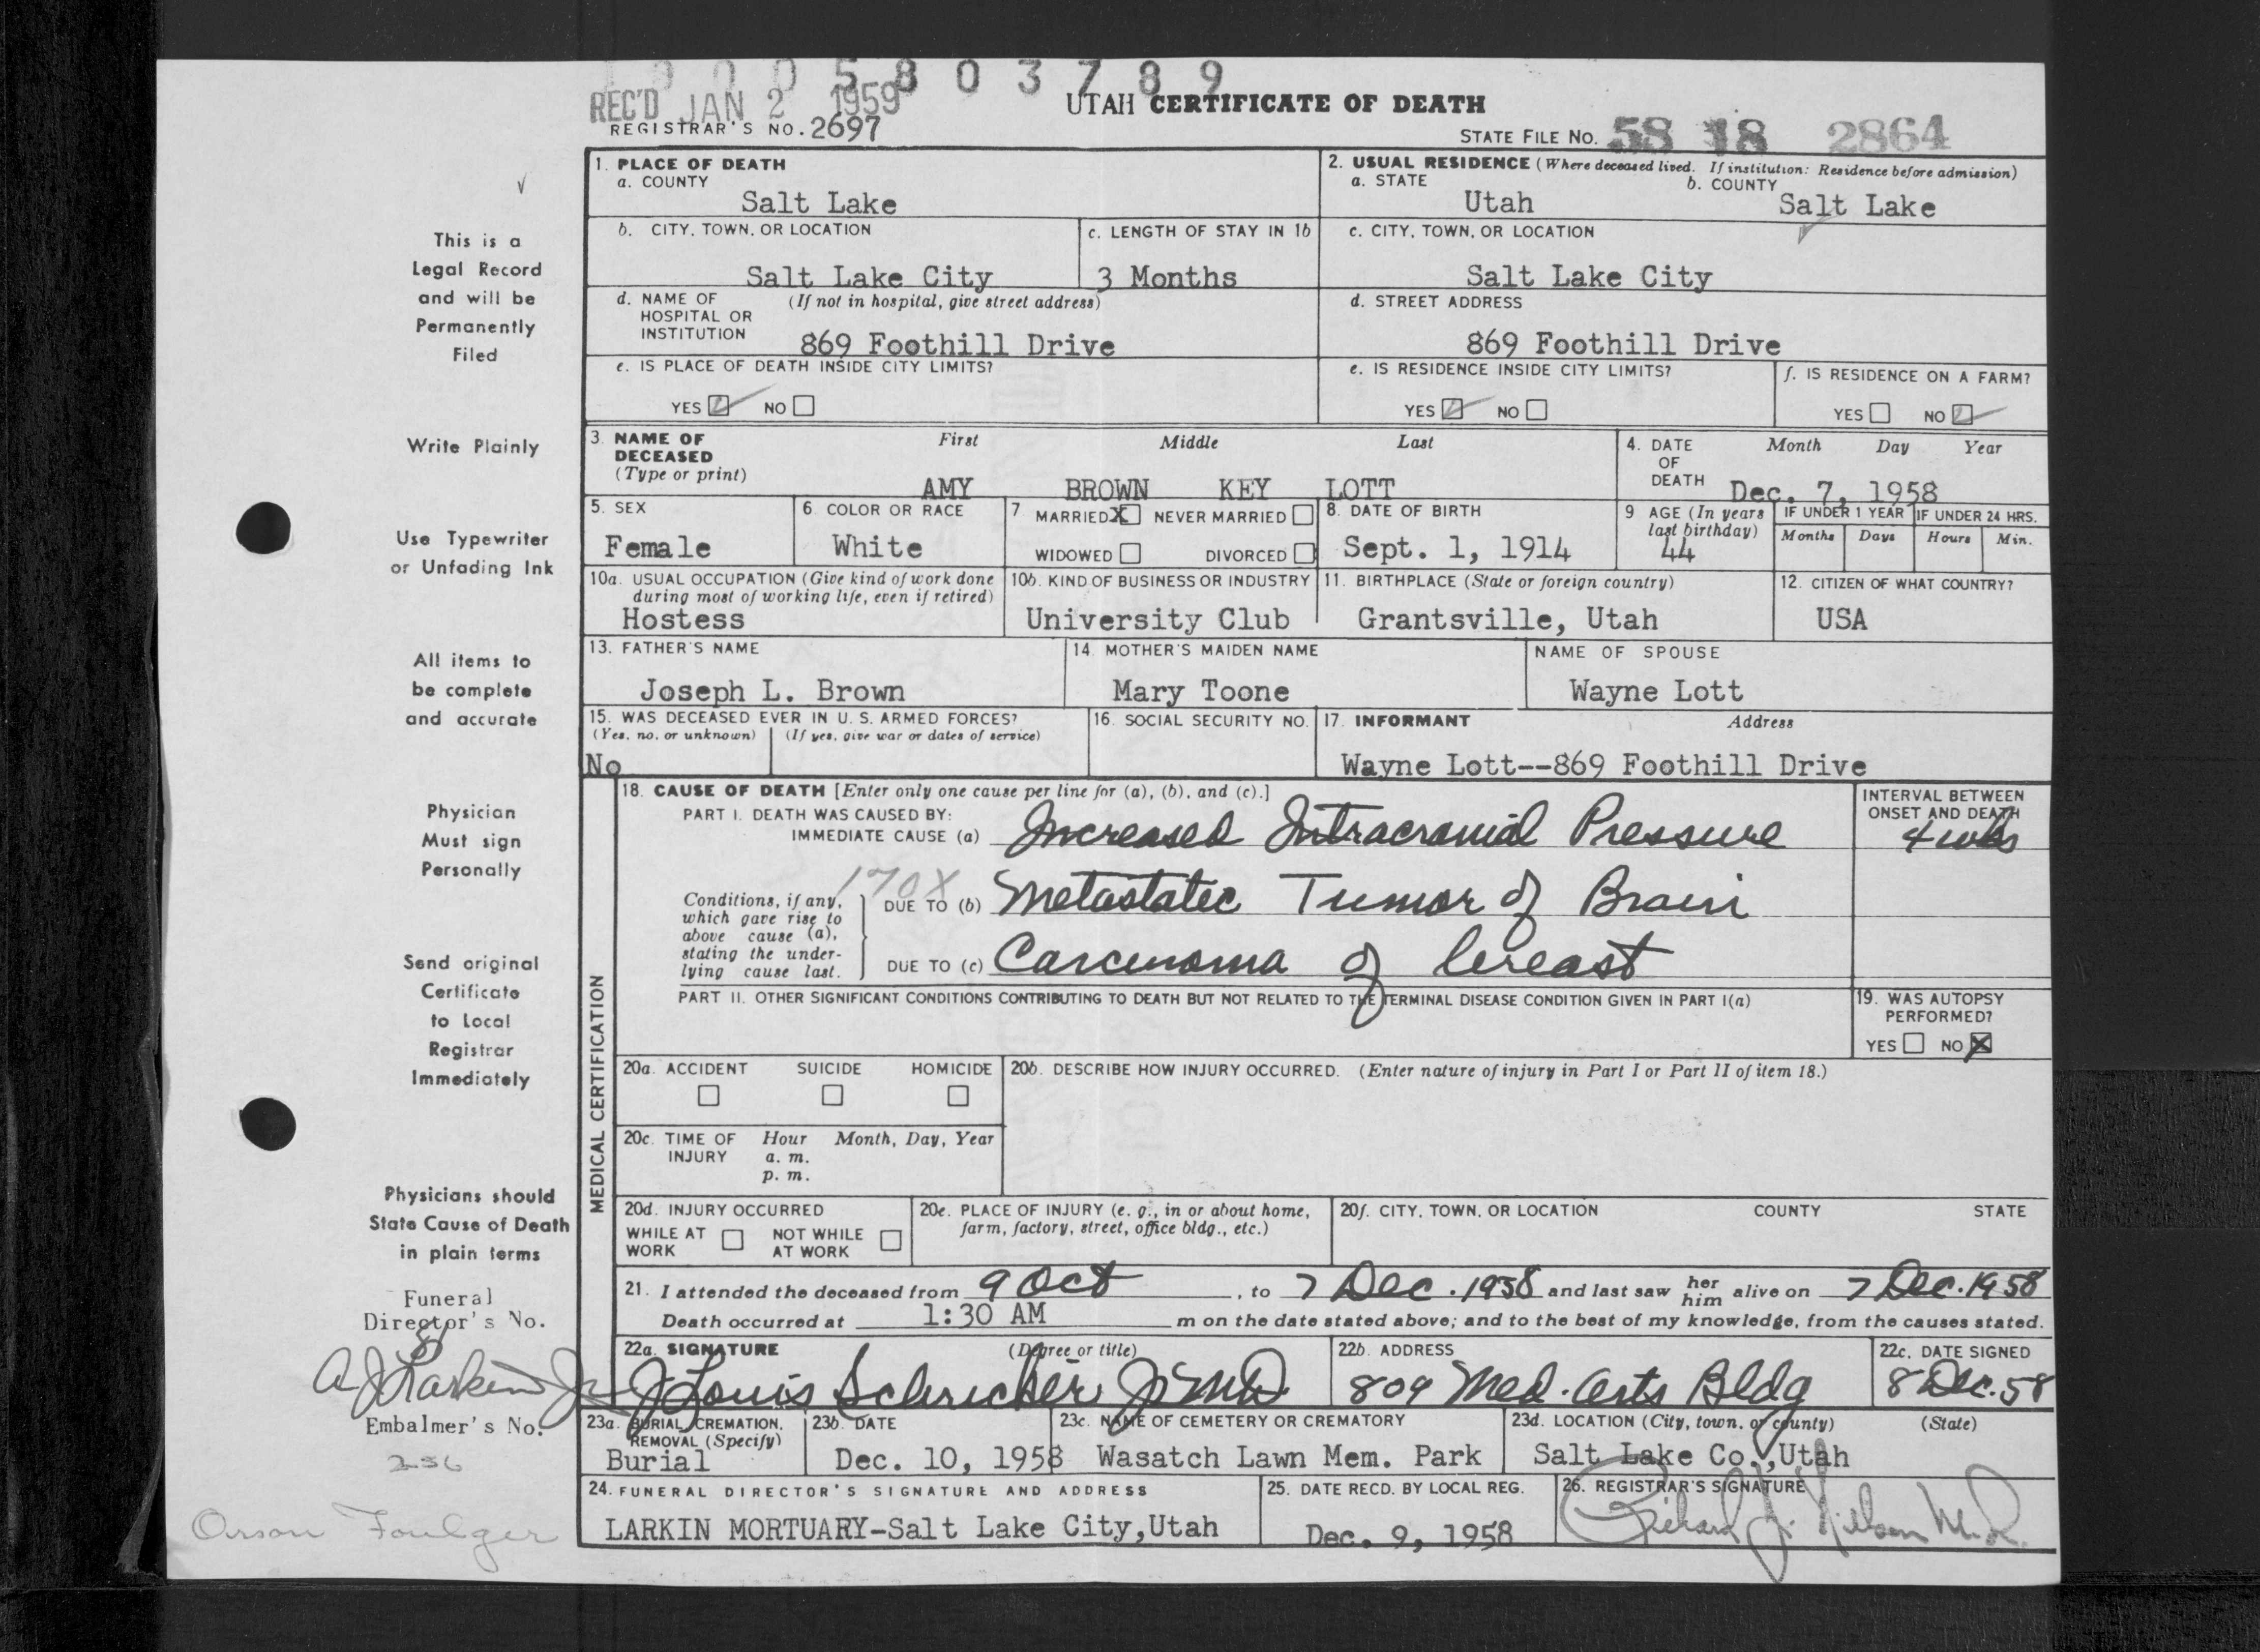 1 0 0 0 5 8 0 3 7 8 9
REC'D JAN 2 1959
UTAH CERTIFICATE OF DEATH
REGISTRAR'S NO. 2697
STATE FILE NO. 58 18 2864
1. PLACE OF DEATH
a. COUNTY
Salt Lake
2. USUAL RESIDENCE (Where deceased lived. If institution: Residence before admission)
a. STATE
Utah
b. COUNTY
Salt Lake
b. CITY, TOWN, OR LOCATION
Salt Lake City
c. LENGTH OF STAY IN 1b
3 Months
c. CITY, TOWN, OR LOCATION
Salt Lake City
d. NAME OF HOSPITAL OR INSTITUTION
(If not in hospital, give street address)
869 Foothill Drive
d. STREET ADDRESS
869 Foothill Drive
e. IS PLACE OF DEATH INSIDE CITY LIMITS?
YES NO
e. IS RESIDENCE INSIDE CITY LIMITS?
YES NO
f. IS RESIDENCE ON A FARM?
YES NO
3. NAME OF DECEASED
(Type or print)
First Middle Last
AMY BROWN KEY LOTT
4. DATE OF DEATH
Month Day Year
Dec. 7, 1958
5. SEX
Female
6. COLOR OR RACE
White
7 MARRIED X NEVER MARRIED
WIDOWED DIVORCED
8. DATE OF BIRTH
Sept. 1, 1914
9 AGE (In years last birthday)
44
IF UNDER 1 YEAR
Months Days
IF UNDER 24 HRS.
Hours Min.
10a. USUAL OCCUPATION (Give kind of work done during most of working life, even if retired)
Hostess
10b. KIND OF BUSINESS OR INDUSTRY
University Club
11. BIRTHPLACE (State or foreign country)
Grantsville, Utah
12. CITIZEN OF WHAT COUNTRY?
USA
13. FATHER'S NAME
Joseph L. Brown
14. MOTHER'S MAIDEN NAME
Mary Toone
NAME OF SPOUSE
Wayne Lott
15. WAS DECEASED EVER IN U. S. ARMED FORCES?
(Yes, no, or unknown) (If yes, give war or dates of service)
No
16. SOCIAL SECURITY NO.
17. INFORMANT Address
Wayne Lott--869 Foothill Drive
MEDICAL CERTIFICATION
18. CAUSE OF DEATH [Enter only one cause per line for (a), (b), and (c).]
PART I. DEATH WAS CAUSED BY:
IMMEDIATE CAUSE (a) Increased Intracranial Pressure
INTERVAL BETWEEN ONSET AND DEATH
4 wks
Conditions, if any, which gave rise to above cause (a), stating the underlying cause last.
170X
DUE TO (b) Metastatic Tumor of Brain
DUE TO (c) Carcinoma of breast
PART II. OTHER SIGNIFICANT CONDITIONS CONTRIBUTING TO DEATH BUT NOT RELATED TO THE TERMINAL DISEASE CONDITION GIVEN IN PART I(a)
19. WAS AUTOPSY PERFORMED?
YES NO X
20a. ACCIDENT SUICIDE HOMICIDE
20b. DESCRIBE HOW INJURY OCCURRED. (Enter nature of injury in Part I or Part II of item 18.)
20c. TIME OF INJURY
Hour Month, Day, Year
a. m.
p. m.
20d. INJURY OCCURRED
WHILE AT WORK NOT WHILE AT WORK
20e. PLACE OF INJURY (e. g., in or about home, farm, factory, street, office bldg., etc.)
20f. CITY, TOWN, OR LOCATION COUNTY STATE
21. I attended the deceased from 9 Oct, to 7 Dec. 1958 and last saw her him alive on 7 Dec. 1958
Death occurred at 1:30 AM m on the date stated above; and to the best of my knowledge, from the causes stated.
22a. SIGNATURE (Degree or title)
J Louis Schricker Jr MD
22b. ADDRESS
809 Med. Arts Bldg
22c. DATE SIGNED
8 Dec. 58
23a. BURIAL, CREMATION, REMOVAL (Specify)
Burial
23b. DATE
Dec. 10, 1958
23c. NAME OF CEMETERY OR CREMATORY
Wasatch Lawn Mem. Park
23d. LOCATION (City, town, or county) (State)
Salt Lake Co., Utah
24. FUNERAL DIRECTOR'S SIGNATURE AND ADDRESS
LARKIN MORTUARY-Salt Lake City, Utah
25. DATE RECD. BY LOCAL REG.
Dec. 9, 1958
26. REGISTRAR'S SIGNATURE
Richard J. Nilson M.D.
This is a
Legal Record
and will be
Permanently
Filed
Write Plainly
Use Typewriter
or Unfading Ink
All items to
be complete
and accurate
Physician
Must sign
Personally
Send original
Certificate
to Local
Registrar
Immediately
Physicians should
State Cause of Death
in plain terms
Funeral
Director's No.
A J Larkin Jr
Embalmer's No.
256
Orson Foulger